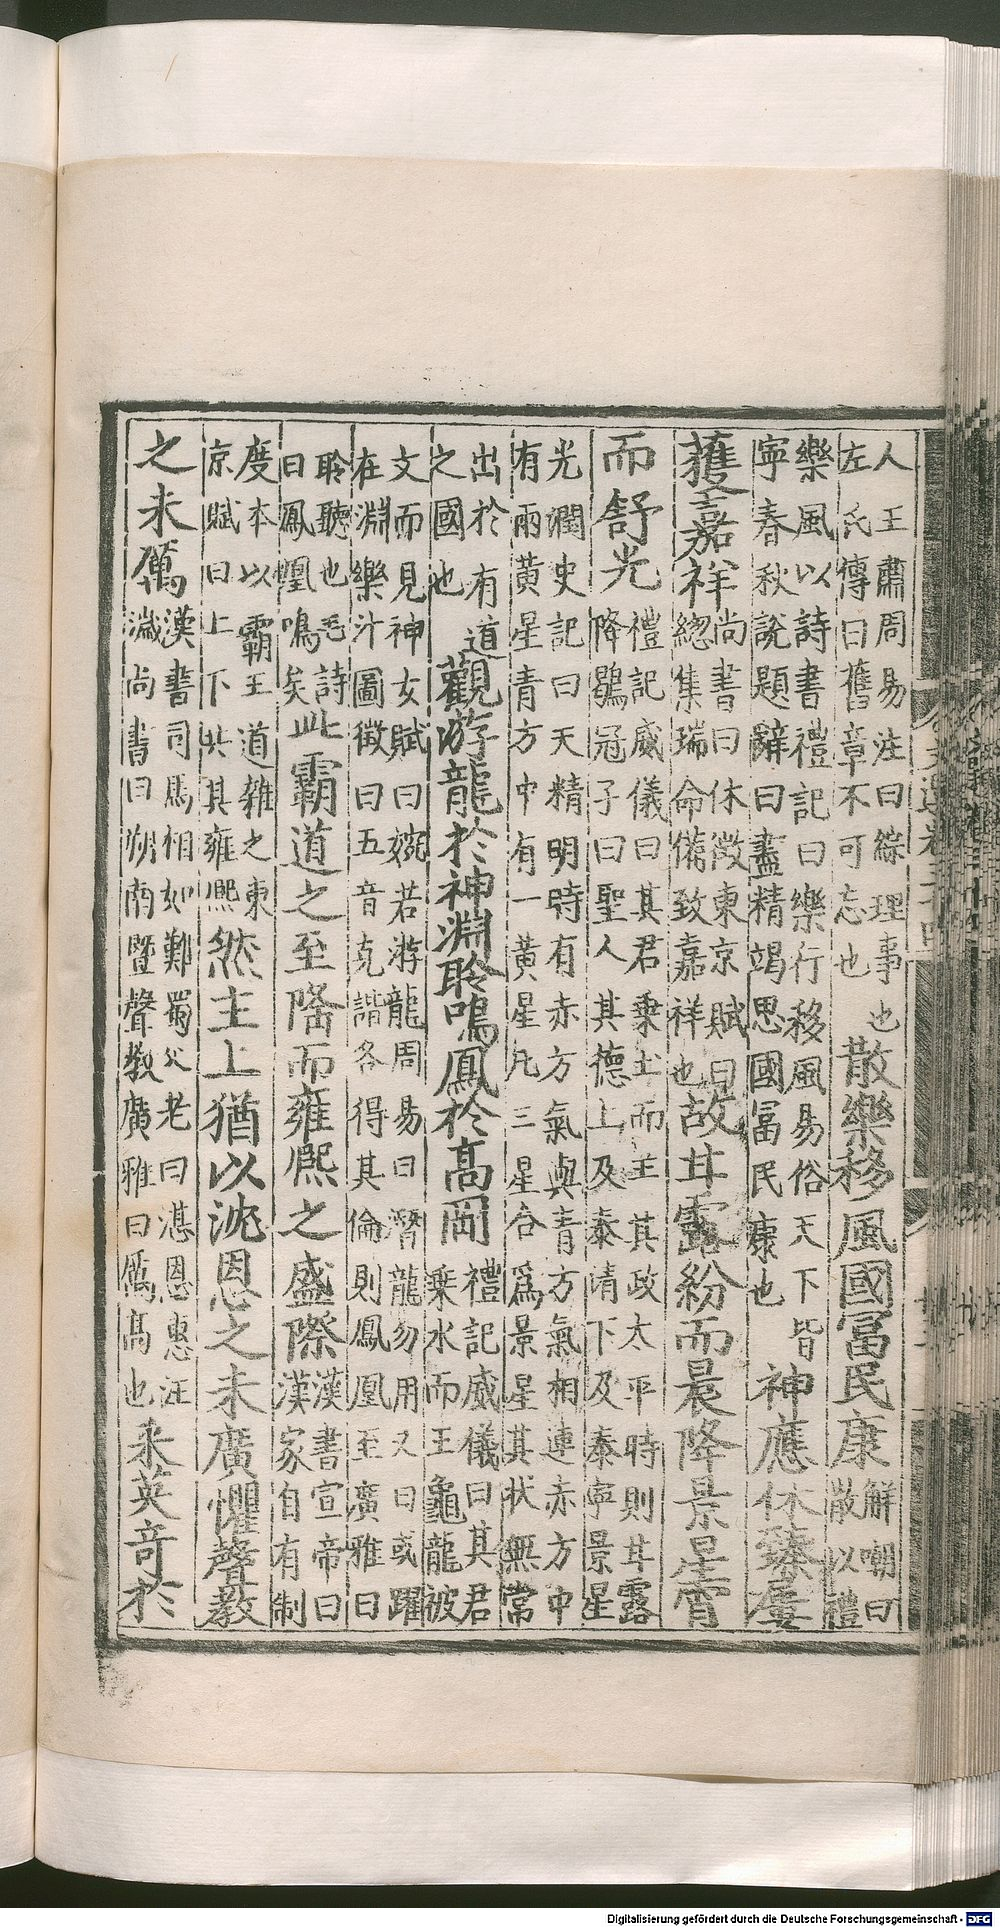 人王肅周易注曰綜理事也
左氏傳曰舊章不可忘也
散樂移風國冨民康
解嘲曰
散以禮
樂風以詩書禮記曰樂行移風易俗天下皆
寧春秋說題辭曰盡精竭思國冨民康也
神應休臻屢
獲嘉祥
尚書曰休徵東京賦曰
緫集瑞命備致嘉祥也
故甘露紛而晨降景星宵
而舒光
禮記威儀曰其君乗土而王其政太平時則甘露
降鶡冠子曰聖人其德上及泰清下及泰寧景星
光潤史記曰天精明時有赤方氣與青方氣相連赤方中
有兩黃星青方中有一黃星凡三星合爲景星其狀無常
出於有道
之國也
觀游龍於神淵聆鳴鳳於髙岡
禮記威儀曰其君
乗水而王龜龍被
文而見神女賦曰婉若游龍周易曰潛龍勿用又曰或躍
在淵樂汁圖徵曰五音克諧各得其倫則鳳凰至廣雅曰
聆聽也毛詩
曰鳳凰鳴矣
此霸道之至隆而雍熙之盛際
漢書宣帝曰
漢家自有制
度本以霸王道雜之東
京賦曰上下共其雍熙
然主上猶以沈恩之未廣懼聲教
之未厲
漢書司馬相如難蜀父老曰湛恩惠汪
濊尚書曰朔南暨聲教廣雅曰厲髙也
采英竒於
Digitalisierung gefördert durch die Deutsche Forschungsgemeinschaft - DFG